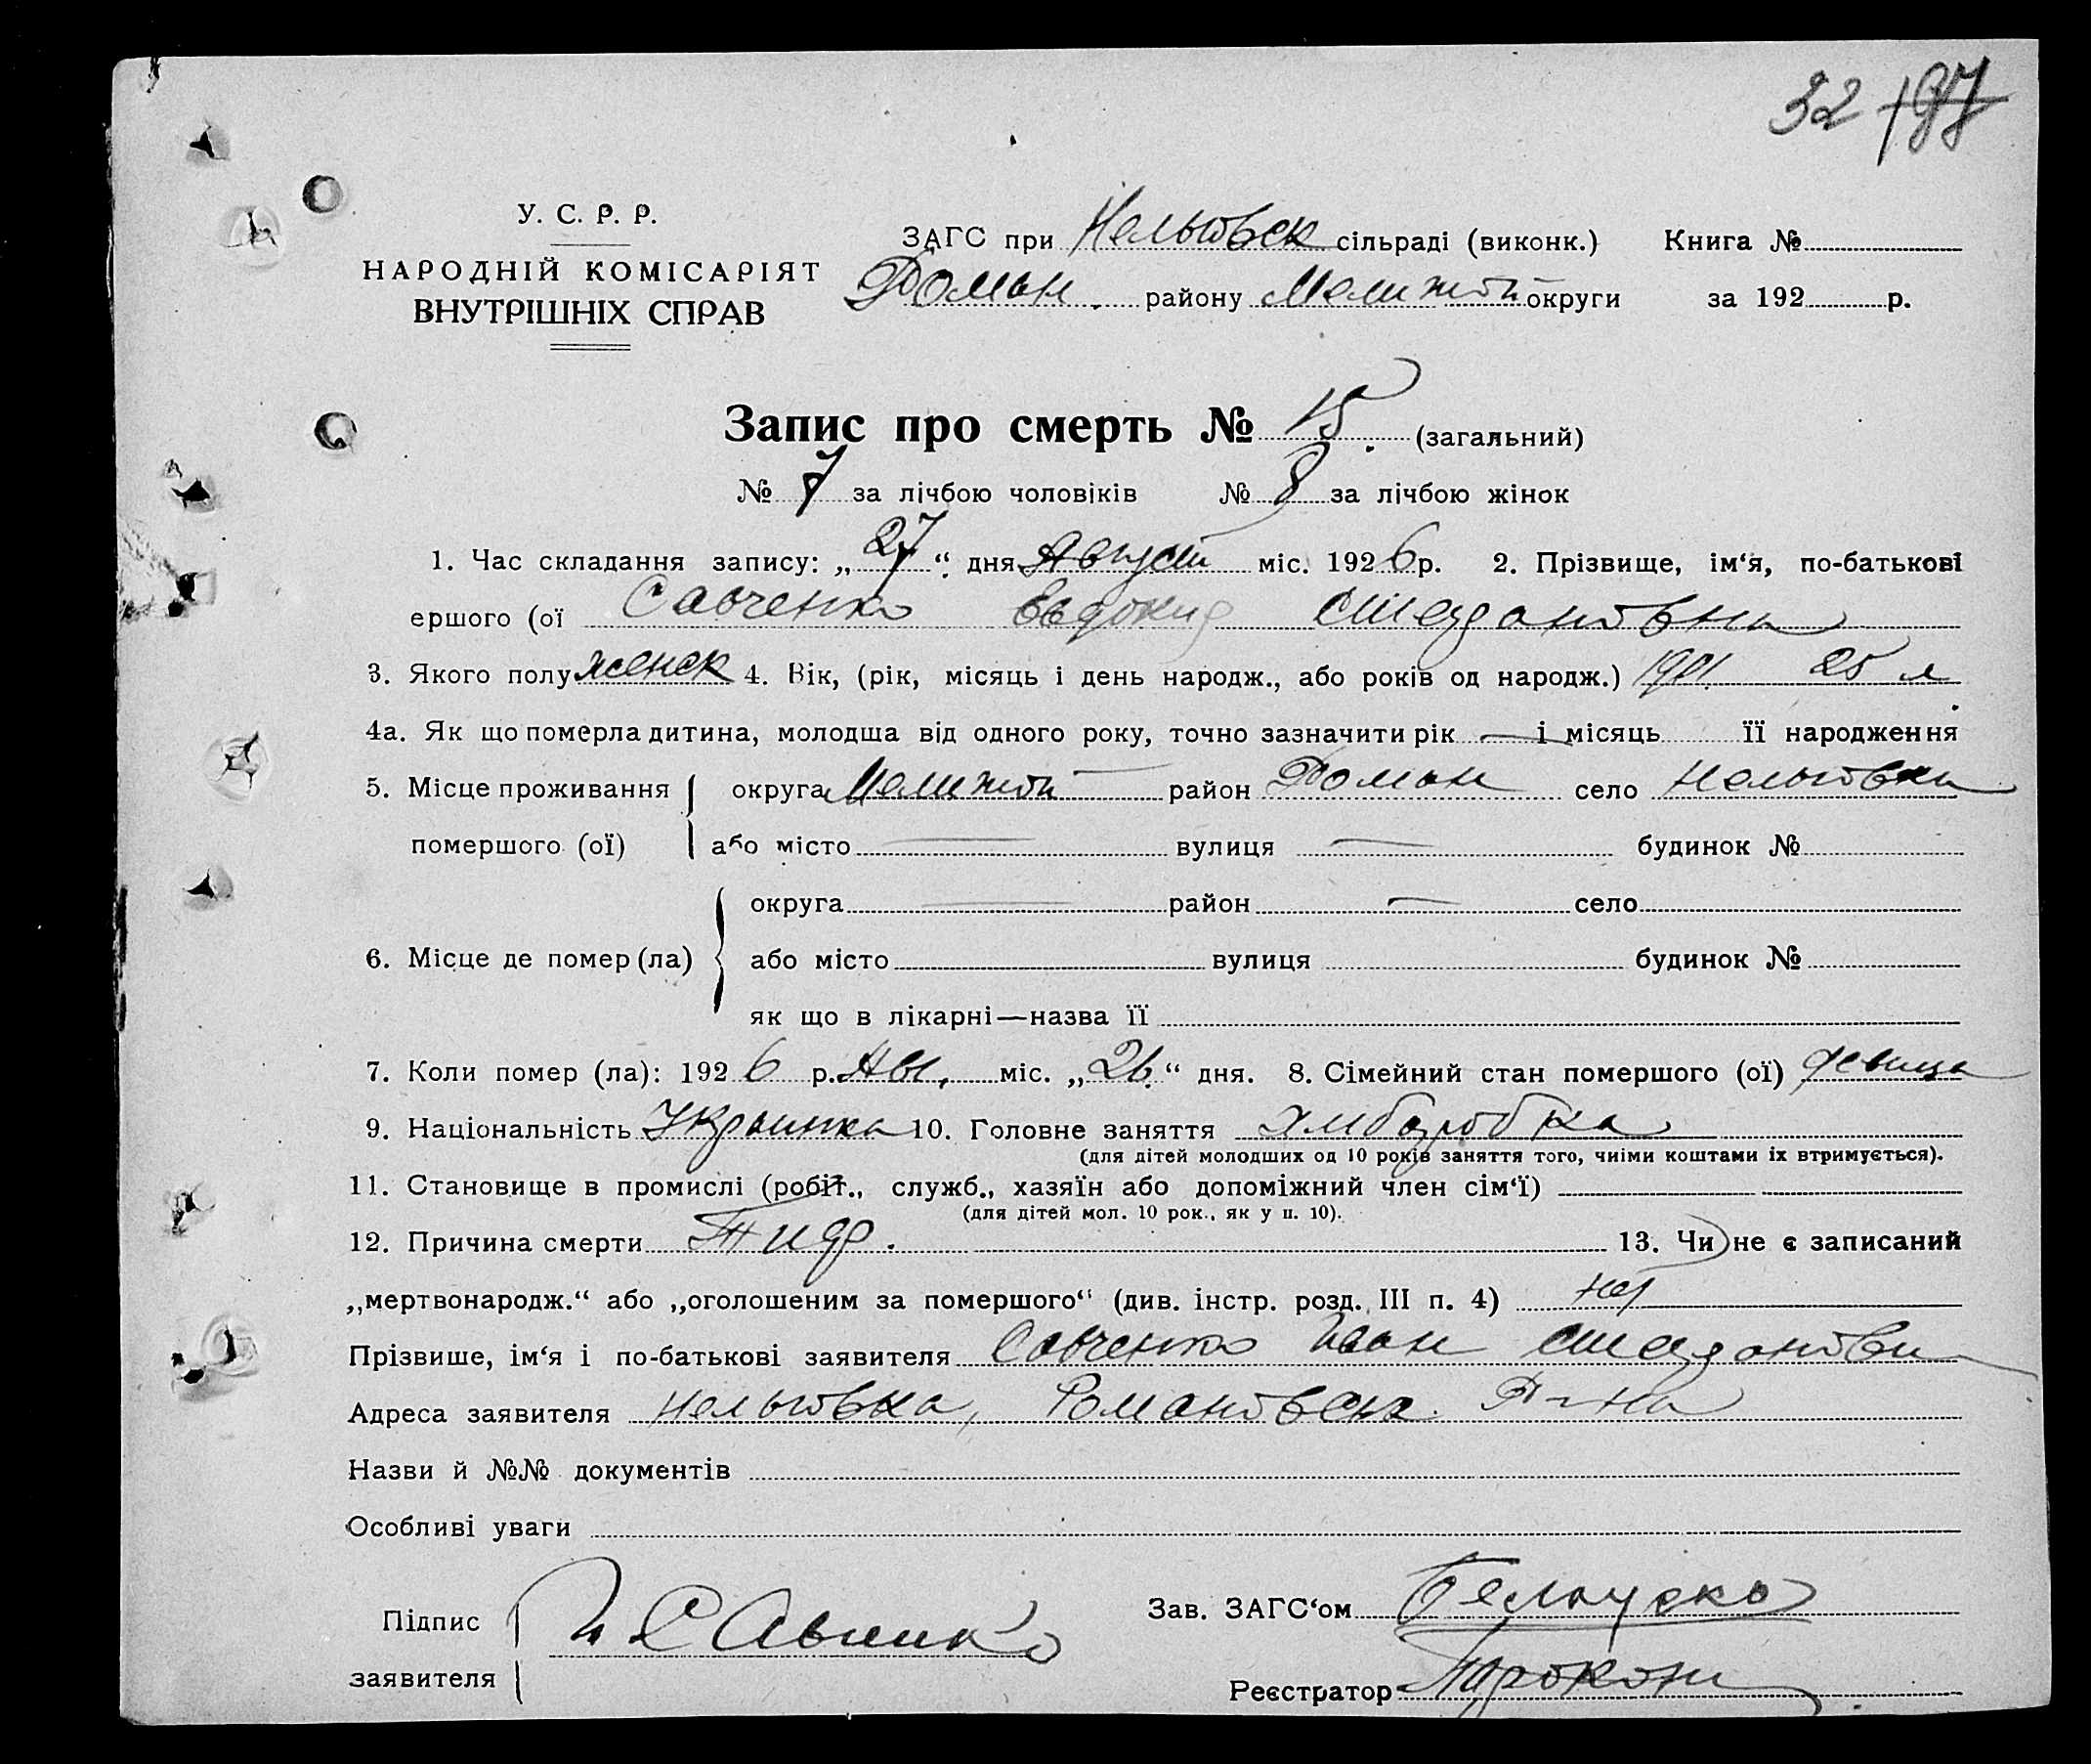 32 197
У. С. Р. Р.
НАРОДНІЙ КОМІСАРІЯТ
ВНУТРІШНІХ СПРАВ
ЗАГС при Нельговск сільраді (виконк.) Книга №
Роман. району Мелитоп округи за 192 р.
Запис про смерть № 15. (загальний)
№ 7 за лічбою чоловіків № 8 за лічбою жінок
1. Час складання запису: „27“ дня Август міс. 1926р. 2. Прізвище, ім‘я, по-батькові
ершого (ої Савченко Евдокия Стефановна
3. Якого полу женск 4. Вік, (рік, місяць і день народж., або років од народж.) 1901. 25 л
4а. Як що померла дитина, молодша від одного року, точно зазначити рік — і місяць її народження
5. Місце проживання округа Мелитоп район Роман село Нельговка
помершого (ої) або місто — вулиця — будинок №
округа — район — село
6. Місце де помер (ла) або місто вулиця будинок №
як що в лікарні—назва її
7. Коли помер (ла): 1926 р. Ав. міс. „26“ дня. 8. Сімейний стан помершого (ої) девица
9. Національність Украинка 10. Головне заняття
(для дітей молодших од 10 років заняття того, чиїми коштами їх втримується).
11. Становище в промислі (робіт., служб., хазяїн або допоміжний член сім‘ї)
(для дітей мол. 10 рок., як у п. 10).
12. Причина смерти Тиф. 13. Чи не є записаний
„мертвонародж.“ або „оголошеним за помершого“ (див. інстр. розд. III п. 4) нет
Прізвише, ім‘я і по-батькові заявителя Савченко Иван Стефанови
Адреса заявителя Нельговка, Романовск. Р-на
Назви й №№ документів
Особливі уваги
Підпис
заявителя И Савченко
Зав. ЗАГС‘ом
Реєстратор